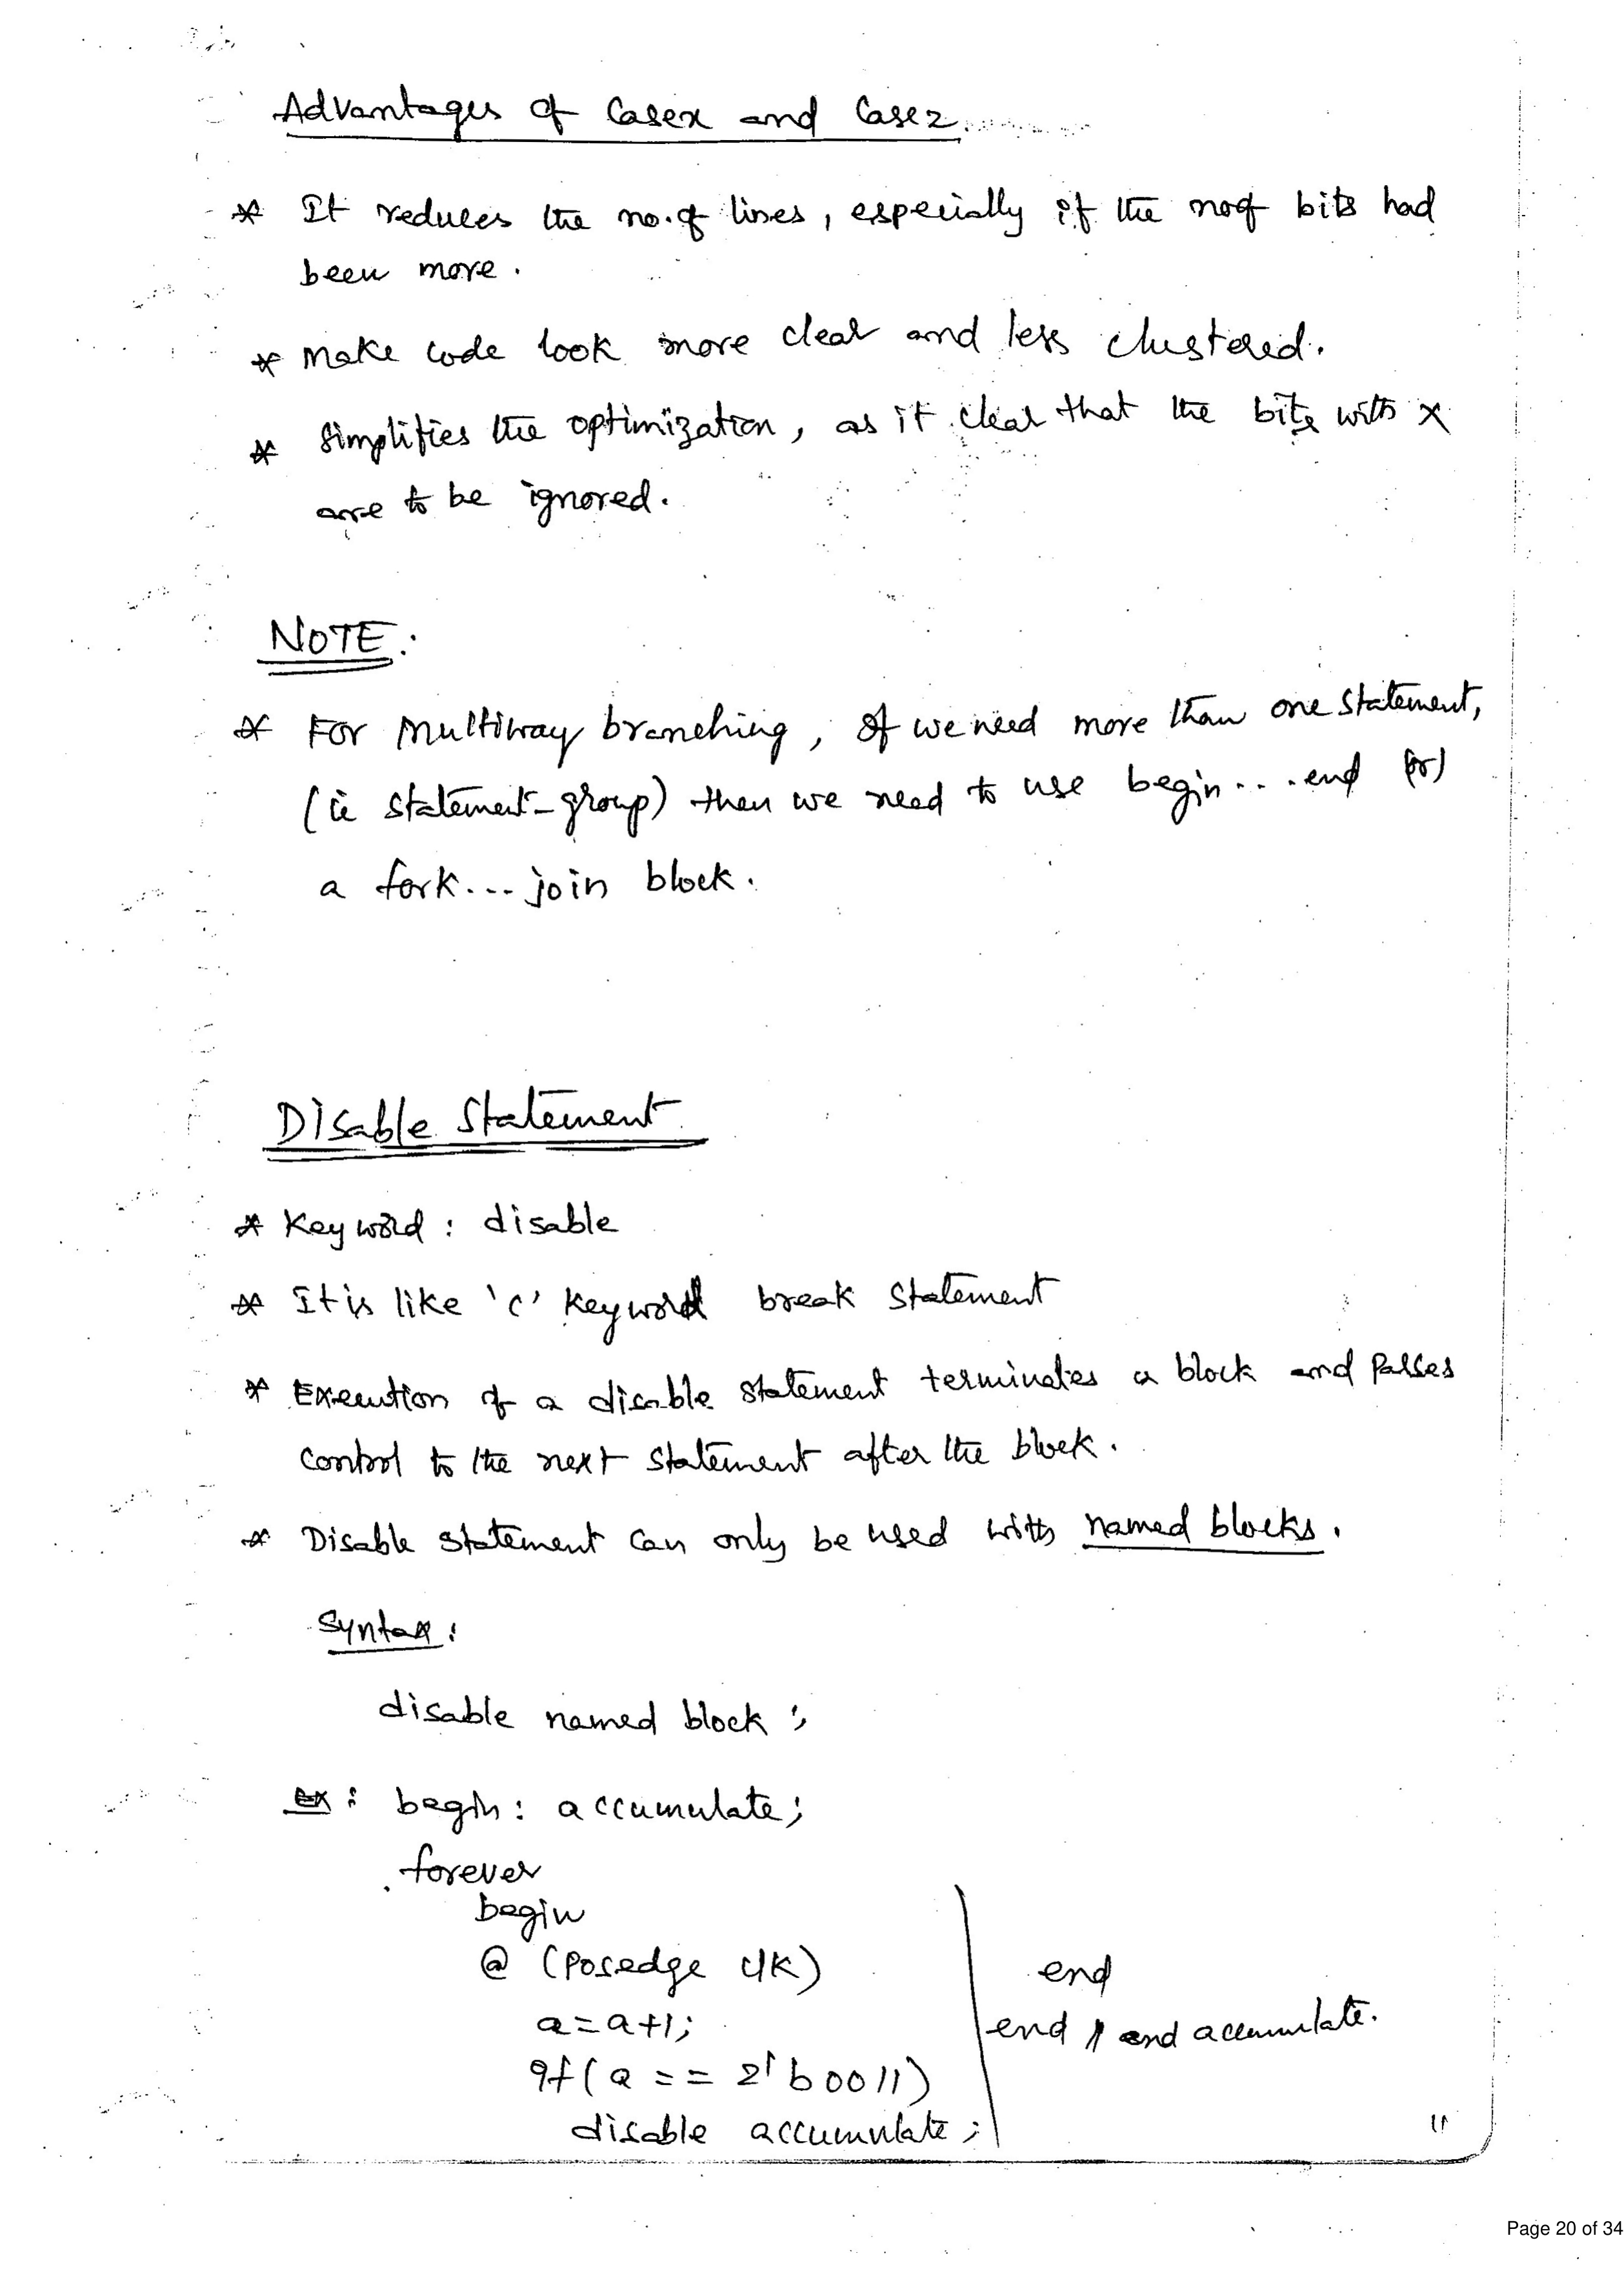 Advantages of Casex and Casez
* It reduces the no.of lines, especially if the no of bits had
been more.
* Make code look more clear and less clustered.
* Simplifies the optimization, as it clear that the bits with x
are to be ignored.
NOTE:
* For Multiway branching, If we need more than one statement,
(ie statement-group) then we need to use begin...end (or)
a fork... join block.
Disable Statement
* Keyword: disable
* It is like 'c' keyword break statement
* Execution of a disable statement terminates a block and passes
control to the next statement after the block.
* Disable statement can only be used with named blocks.
Syntax:
disable named block;
ex: begin: accumulate;
forever
begin
@ (posedge clk)
a=a+1;
if(a == 2'b0011)
disable accumulate;
end
end // end accumulate.
11
Page 20 of 34